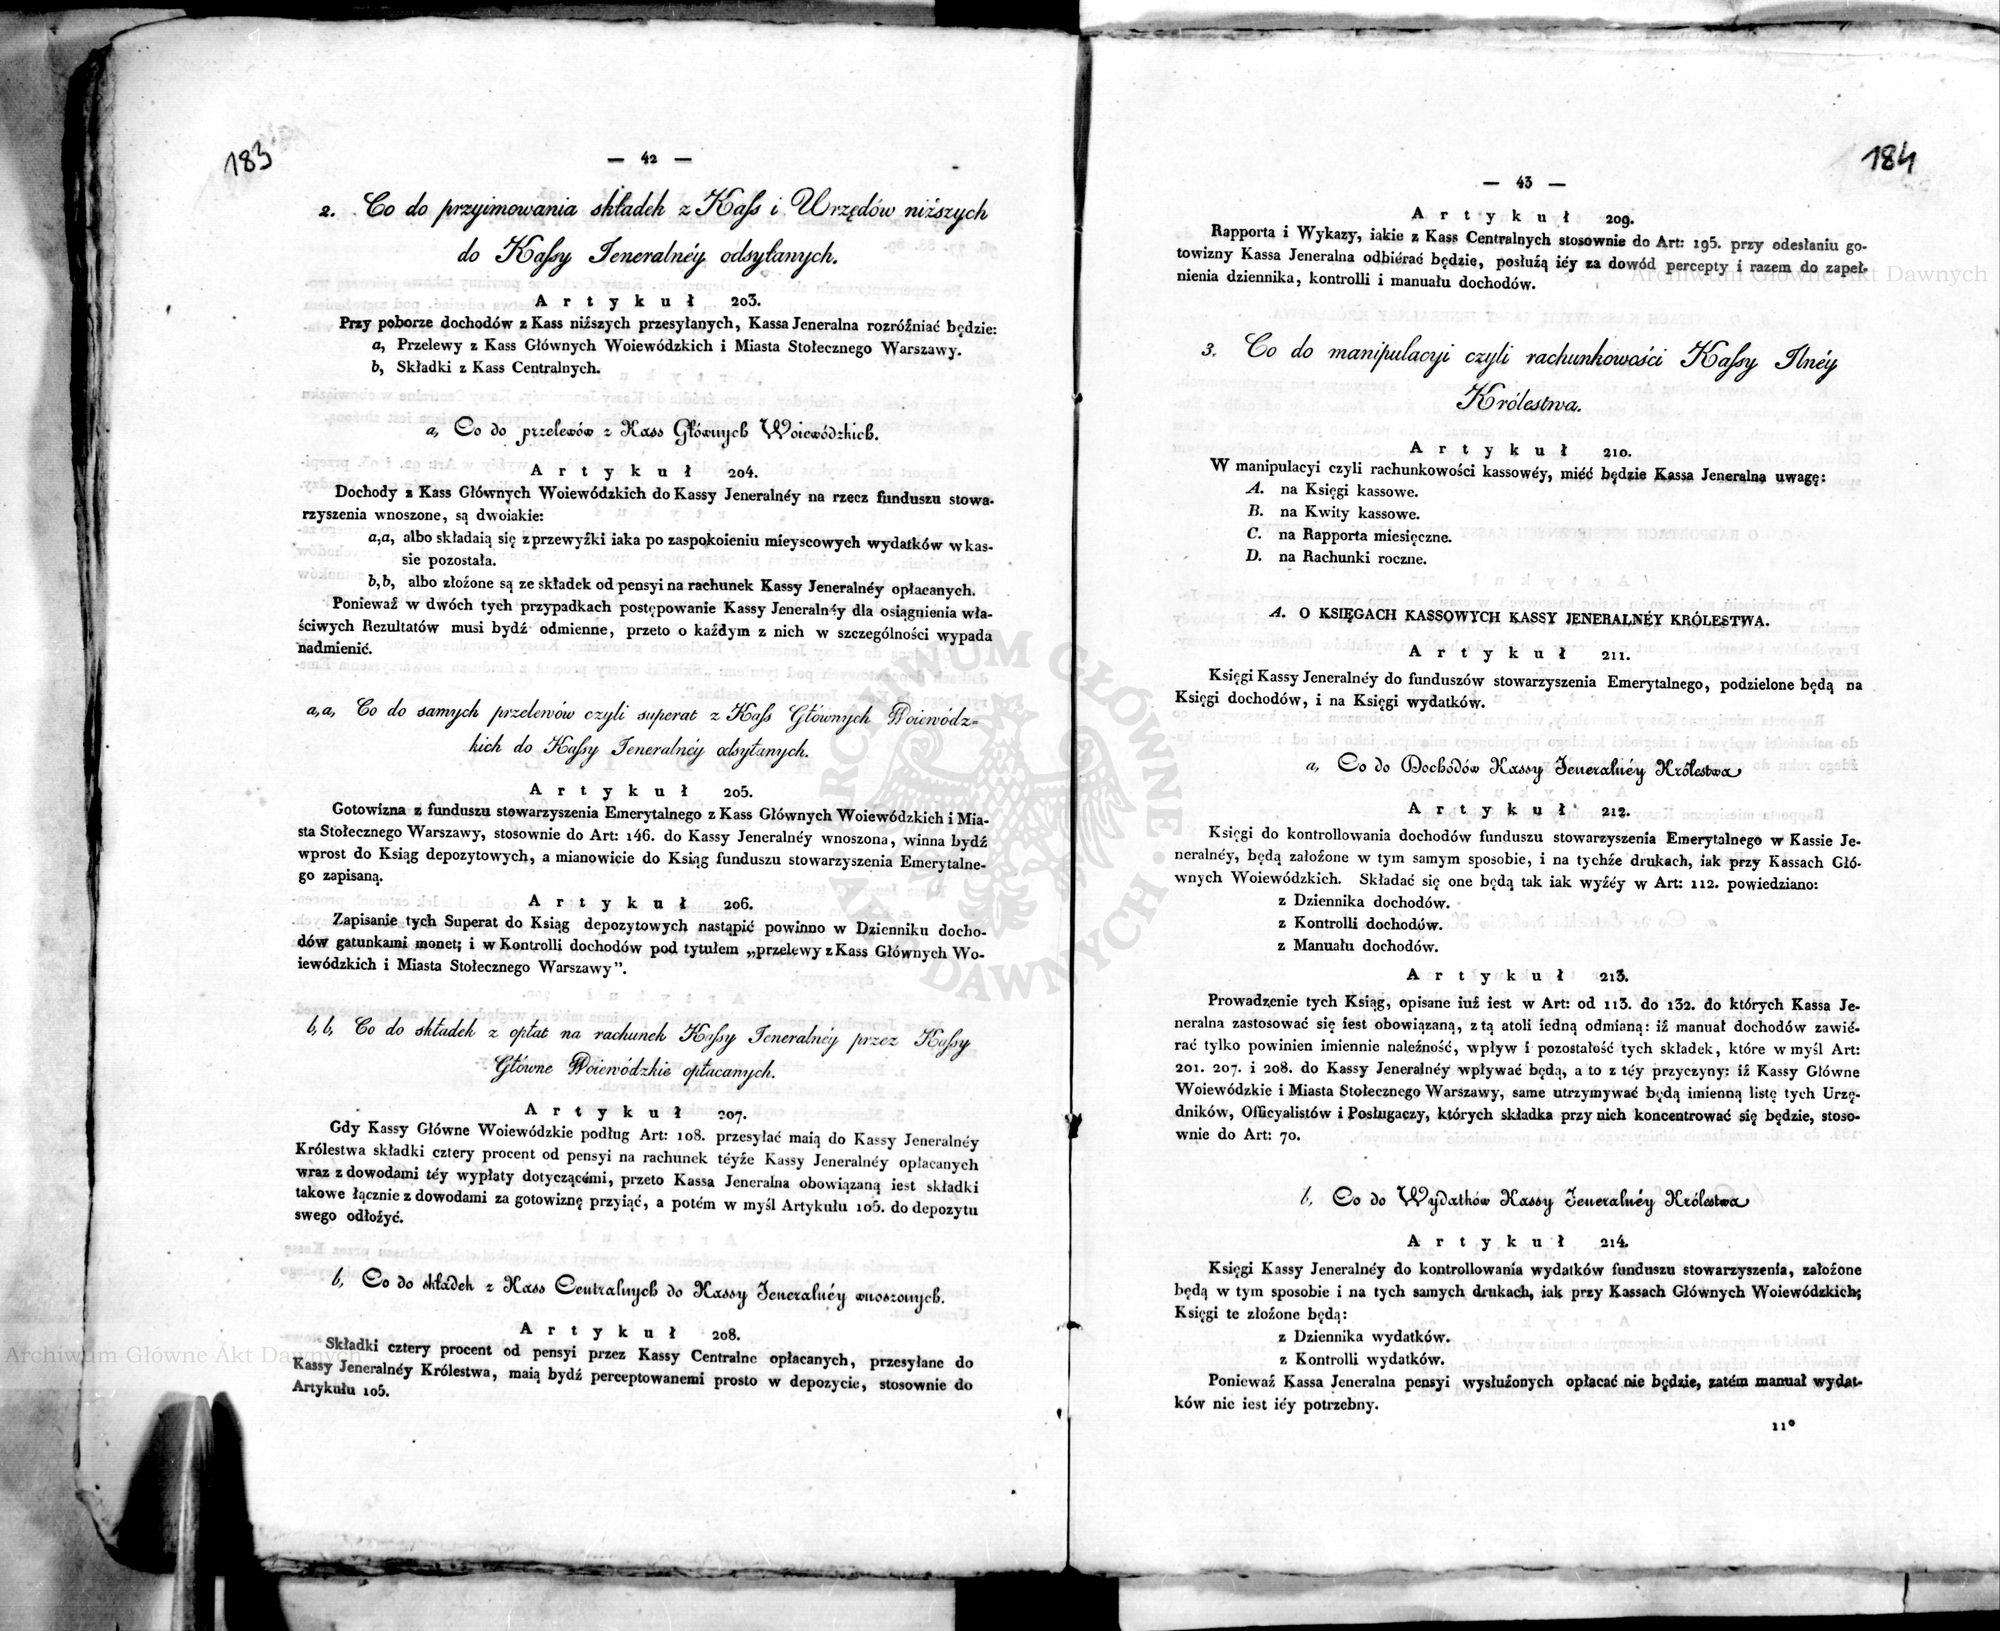 183
— 42 —
2. Co do przyimowania składek z Kass i Urzędów niższych
do Kassy Jeneralnéy odsyłanych.
Artykuł 203.
Przy poborze dochodów z Kass niższych przesyłanych, Kassa Jeneralna rozróźniać będzie:
a, Przelewy z Kass Głównych Woiewódzkich i Miasta Stołecznego Warszawy.
b, Składki z Kass Centralnych.
a, Co do przelewów z Kass Głównych Woiewódzkich.
Artykuł 204.
Dochody z Kass Głównych Woiewódzkich do Kassy Jeneralnéy na rzecz funduszu stowa-
rzyszenia wnoszone, są dwoiakie:
a,a, albo składaią się z przewyźki iaka po zaspokoieniu mieyscowych wydatków w kas-
sie pozostała.
b,b, albo złoźone są ze składek od pensyi na rachunek Kassy Jeneralnéy opłacanych.
Poniewaź w dwóch tych przypadkach postępowanie Kassy Jeneralnéy dla osiągnienia wła-
ściwych Rezultatów musi bydź odmienne, przeto o kaźdym z nich w szczególności wypada
nadmienić.
a,a, Co do samych przelewów czyli superat z Kass Głównych Woiewódz-
kich do Kassy Jeneralnéy odsyłanych.
Artykuł 205.
Gotowizna z funduszu stowarzyszenia Emerytalnego z Kass Głównych Woiewódzkich i Mia-
sta Stołecznego Warszawy, stosownie do Art: 146. do Kassy Jeneralnéy wnoszona, winna bydź
wprost do Ksiąg depozytowych, a mianowicie do Ksiąg funduszu stowarzyszenia Emerytalne-
go zapisaną.
Artykuł 206.
Zapisanie tych Superat do Ksiąg depozytowych nastąpić powinno w Dzienniku docho-
dów gatunkami monet; i w Kontrolli dochodów pod tytułem „przelewy z Kass Głównych Wo-
iewódzkich i Miasta Stołecznego Warszawy”.
b,b, Co do składek z opłat na rachunek Kassy Jeneralnéy przez Kassy
Główne Woiewódzkie opłacanych.
Artykuł 207.
Gdy Kassy Główne Woiewódzkie podług Art: 108. przesyłać maią do Kassy Jeneralnéy
Królestwa składki cztery procent od pensyi na rachunek téyże Kassy Jeneralnéy opłacanych
wraz z dowodami téy wypłaty dotyczącémi, przeto Kassa Jeneralna obowiązaną iest składki
takowe łącznie z dowodami za gotowiznę przyiąć, a potém w myśl Artykułu 105. do depozytu
swego odłoźyć.
b, Co do składek z Kass Centralnych do Kassy Jeneralnéy wnoszonych.
Artykuł 208.
Składki cztery procent od pensyi przez Kassy Centralne opłacanych, przesyłane do
Kassy Jeneralnéy Królestwa, maią bydź perceptowanemi prosto w depozycie, stosownie do
Artykułu 105.
184
— 43 —
Artykuł 209.
Rapporta i Wykazy, iakie z Kass Centralnych stosownie do Art: 195. przy odesłaniu go-
towizny Kassa Jeneralna odbiérać będzie, posłuźą iéy za dowód percepty i razem do zapeł-
nienia dziennika, kontrolli i manuału dochodów.
3. Co do manipulacyi czyli rachunkowości Kassy Jlnéy
Królestwa.
Artykuł 210.
W manipulacyi czyli rachunkowości kassowéy, miéć będzie Kassa Jeneralna uwagę:
A. na Księgi kassowe.
B. na Kwity kassowe.
C. na Rapporta miesięczne.
D. na Rachunki roczne.
A. O KSIĘGACH KASSOWYCH KASSY JENERALNÉY KRÓLESTWA.
Artykuł 211.
Księgi Kassy Jeneralnéy do funduszów stowarzyszenia Emerytalnego, podzielone będą na
Księgi dochodów, i na Księgi wydatków.
a, Co do Dochodów Kassy Jeneralnéy Królestwa
Artykuł 212.
Księgi do kontrollowania dochodów funduszu stowarzyszenia Emerytalnego w Kassie Je-
neralnéy, będą załoźone w tym samym sposobie, i na tychźe drukach, iak przy Kassach Głó-
wnych Woiewódzkich. Składać się one będą tak iak wyźéy w Art: 112. powiedziano:
z Dziennika dochodów.
z Kontrolli dochodów.
z Manuału dochodów.
Artykuł 213.
Prowadzenie tych Ksiąg, opisane iuź iest w Art: od 113. do 132. do których Kassa Je-
neralna zastosować się iest obowiązaną, z tą atoli iedną odmianą: iź manuał dochodów zawié-
rać tylko powinien imiennie naleźność, wpływ i pozostałość tych składek, które w myśl Art:
201. 207. i 208. do Kassy Jeneralnéy wpływać będą, a to z téy przyczyny: iź Kassy Główne
Woiewódzkie i Miasta Stołecznego Warszawy, same utrzymywać będą imienną listę tych Urzę-
dników, Officyalistów i Posługaczy, których składka przy nich koncentrować się będzie, stoso-
wnie do Art: 70.
b, Co do Wydatków Kassy Jeneralnéy Królestwa
Artykuł 214.
Księgi Kassy Jeneralnéy do kontrollowania wydatków funduszu stowarzyszenia, załoźone
będą w tym sposobie i na tych samych drukach, iak przy Kassach Głównych Woiewódzkich;
Księgi te złoźone będą:
z Dziennika wydatków.
z Kontrolli wydatków.
Poniewaź Kassa Jeneralna pensyi wysłuźonych opłacać nie będzie, zatém manuał wydat-
ków nic iest iéy potrzebny.
11*
Archiwum Główne Akt Dawnych
Archiwum Główne Akt Dawnych
ARCHIWUM GŁÓWNE AKT DAWNYCH